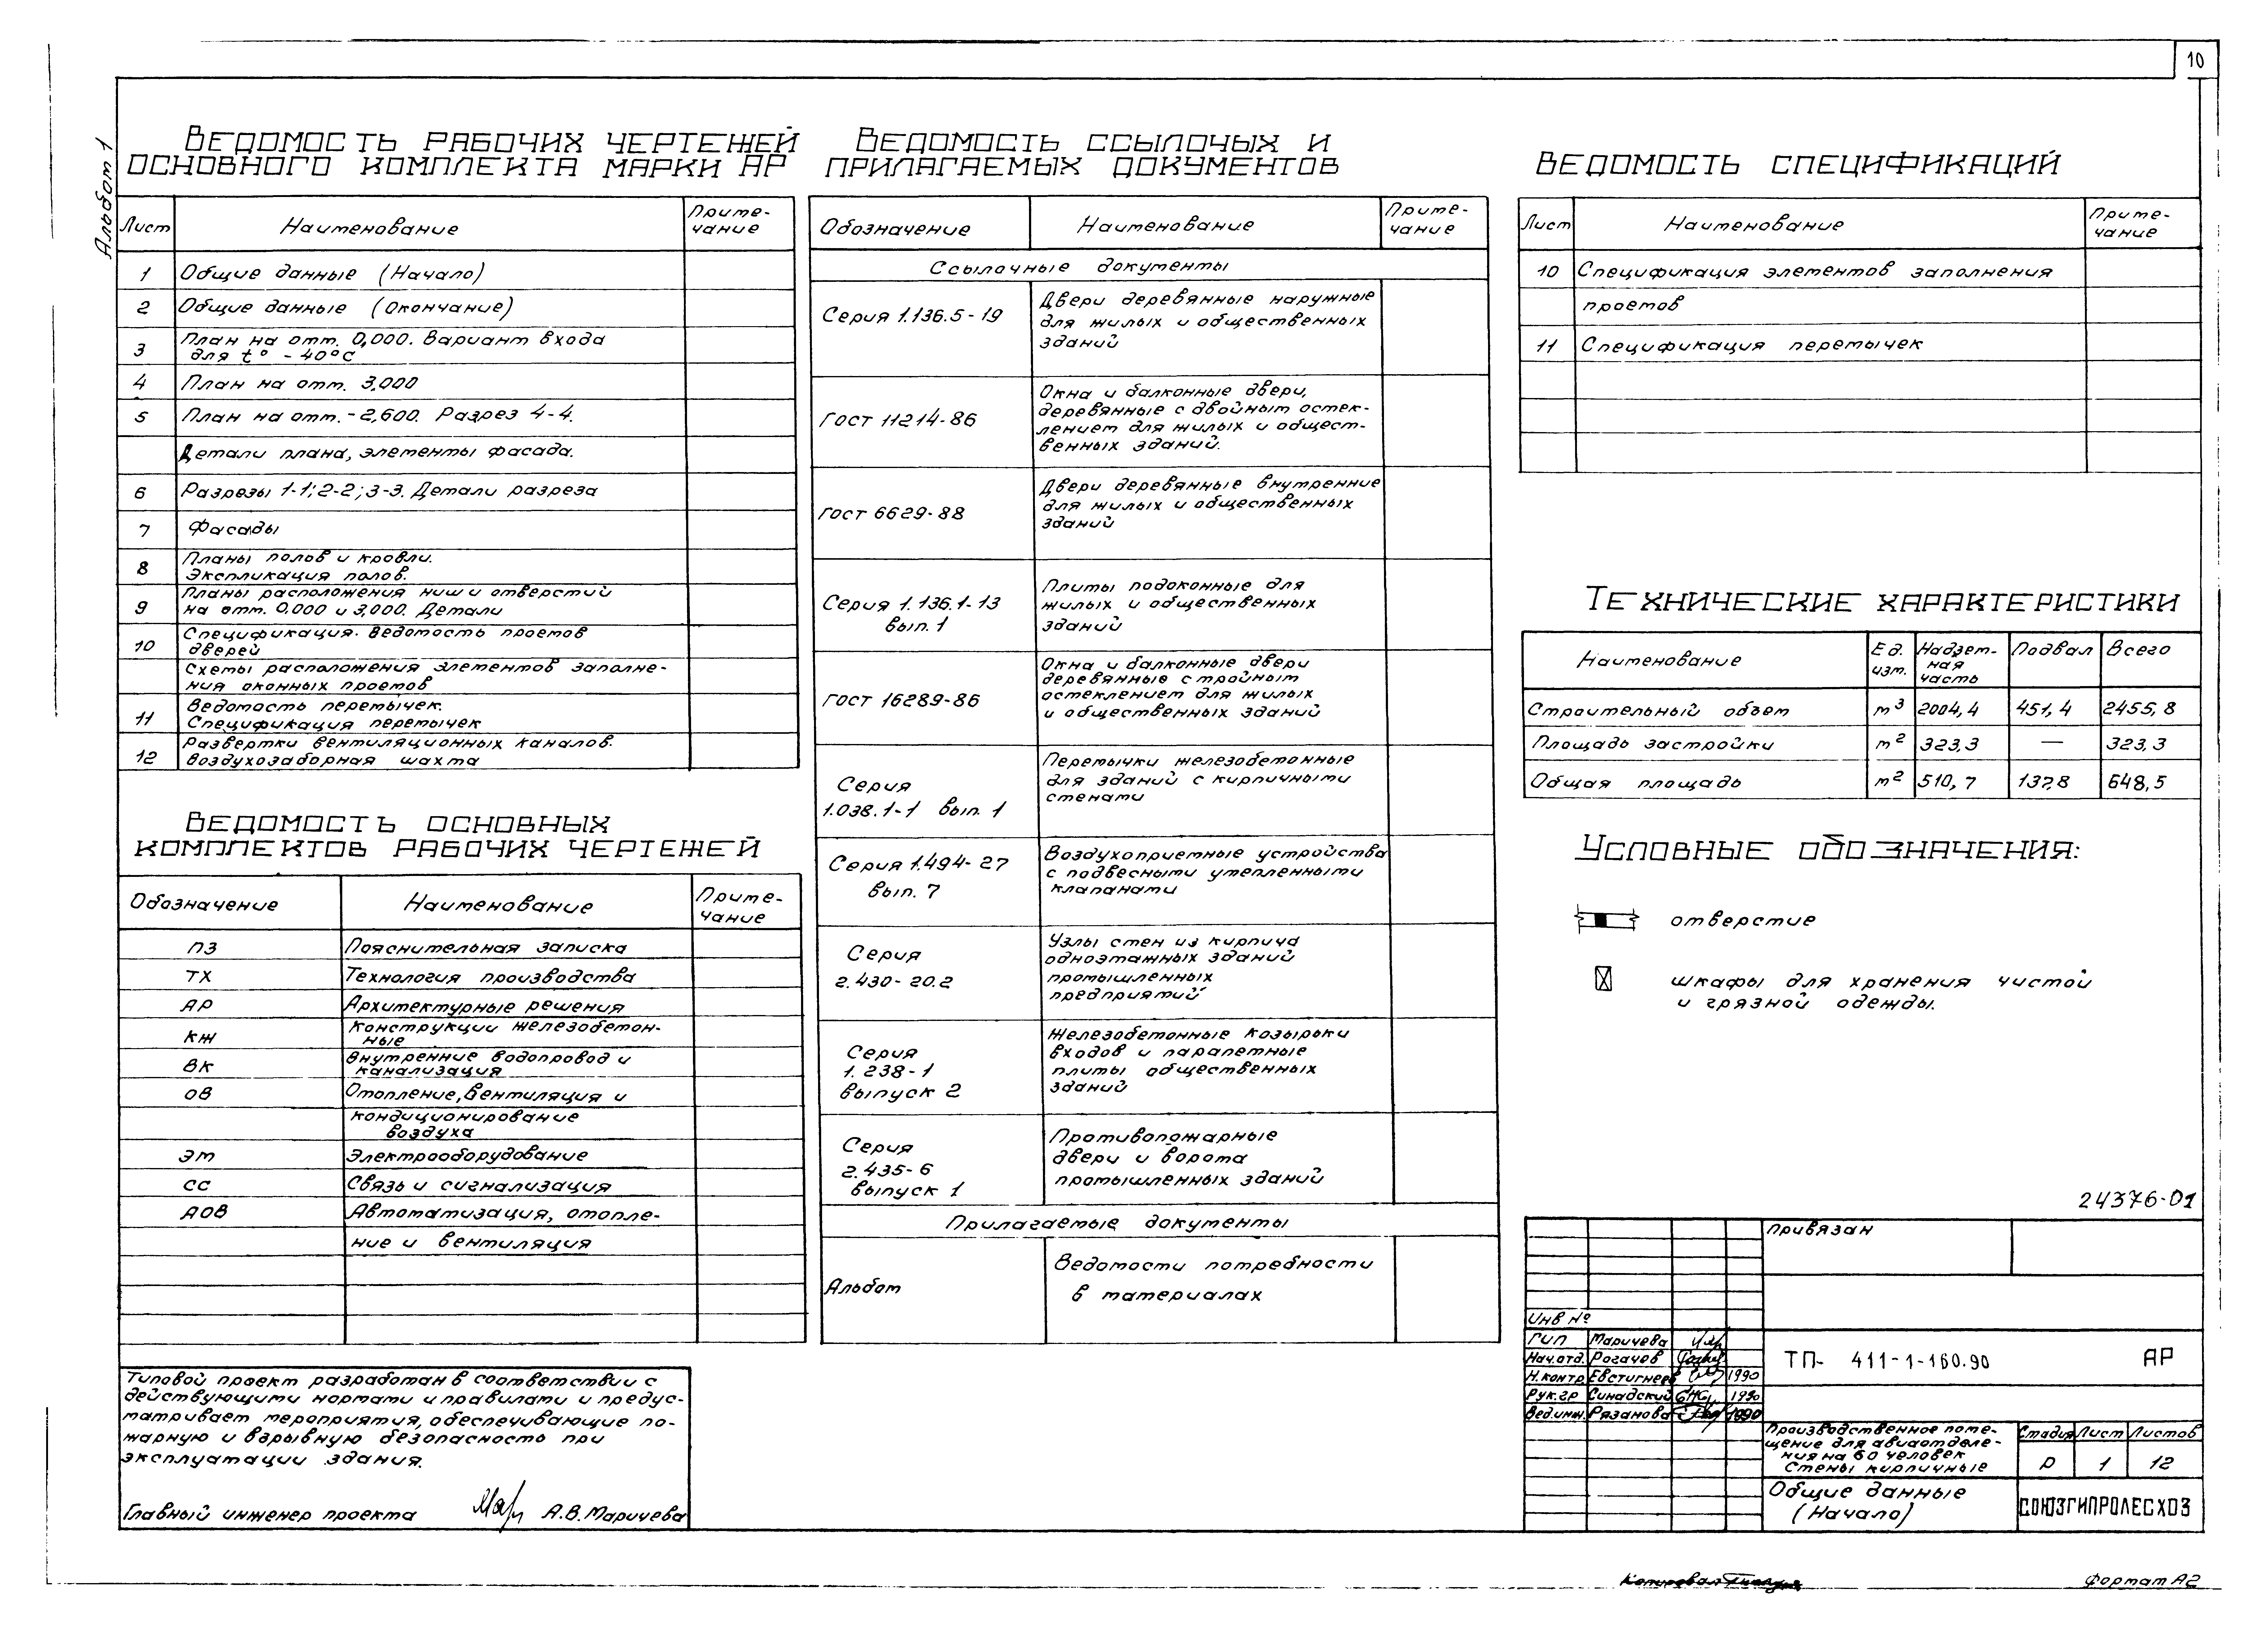 10
Альбом 1
Ведомость рабочих чертежей
основного комплекта марки АР
Лист Наименование Приме-
чание
1 Общие данные (Начало)
2 Общие данные (Окончание)
3 План на отм. 0,000. Вариант входа
для t° - 40°С
4 План на отм. 3,000
5 План на отм. -2,600. Разрез 4-4.
Детали плана, элементы фасада.
6 Разрезы 1-1; 2-2; 3-3. Детали разреза
7 Фасады
8 Планы полов и кровли.
Экспликация полов.
9 Планы расположения ниш и отверстий
на отм. 0,000 и 3,000. Детали
10 Спецификация. Ведомость проемов
дверей
Схемы расположения элементов заполне-
ния оконных проемов
11 Ведомость перемычек.
Спецификация перемычек
12 Развертки вентиляционных каналов.
Воздухозаборная шахта
Ведомость основных
комплектов рабочих чертежей
Обозначение Наименование Приме-
чание
ПЗ Пояснительная записка
ТХ Технология производства
АР Архитектурные решения
КЖ Конструкции железобетон-
ные
ВК Внутренние водопровод и
канализация
ОВ Отопление, вентиляция и
кондиционирование
воздуха
ЭМ Электрооборудование
СС Связь и сигнализация
АОВ Автоматизация, отопле-
ние и вентиляция
Типовой проект разработан в соответствии с
действующими нормами и правилами и предус-
матривает мероприятия, обеспечивающие по-
жарную и взрывную безопасность при
эксплуатации здания.
Главный инженер проекта А.В. Маричева
Ведомость ссылочых и
прилагаемых документов
Обозначение Наименование Приме-
чание
Ссылочные документы
Серия 1.136.5-19 Двери деревянные наружные
для жилых и общественных
зданий
Гост 11214-86 Окна и балконные двери,
деревянные с двойным остек-
лением для жилых и общест-
венных зданий.
Гост 6629-88 Двери деревянные внутренние
для жилых и общественных
зданий
Серия 1.136.1-13
вып. 1
Плиты подоконные для
жилых и общественных
зданий
Гост 16289-86 Окна и балконные двери
деревянные с тройным
остеклением для жилых
и общественных зданий
Серия
1.038.1-1 вып. 1
Перемычки железобетонные
для зданий с кирпичными
стенами
Серия 1.494-27
вып. 7
Воздухоприемные устройства
с подвесными утепленными
клапанами
Серия
2.430-20.2
Узлы стен из кирпича
одноэтажных зданий
промышленных
предприятий
Серия
1.238-1
выпуск 2
Железобетонные козырьки
входов и парапетные
плиты общественных
зданий
Серия
2.435-6
выпуск 1
Противопожарные
двери и ворота
промышленных зданий
Прилагаемые документы
Альбом Ведомости потребности
в материалах
Ведомость спецификаций
Лист Наименование Приме-
чание
10 Спецификация элементов заполнения
проемов
11 Спецификация перемычек
Технические характеристики
Наименование Ед.
изм. Надзем-
ная
часть Подвал Всего
Строительный объем м3 2004,4 451,4 2455,8
Площадь застройки м2 323,3 — 323,3
Общая площадь м2 510,7 137,8 648,5
Условные обозначения:
отверстие
шкафы для хранения чистой
и грязной одежды.
24376-01
Привязан
Инв №
ГИП Маричева
Нач.отд. Рогачов
Н.контр Евстигнеев 1990
Рук.гр Синадский 1990
Вед.инж. Рязанова 1990
ТП- 411-1-160.90 АР
Производственное поме-
щение для авиаотделе-
ния на 60 человек
Стены кирпичные
Стадия Лист Листов
Р 1 12
Общие данные
(Начало)
СОЮЗГИПРОЛЕСХОЗ
Копировал
Формат А2